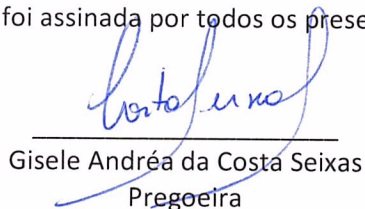 foi assinada por todos os prese
Gisele Andréa da Costa Seixas
Pregoeira